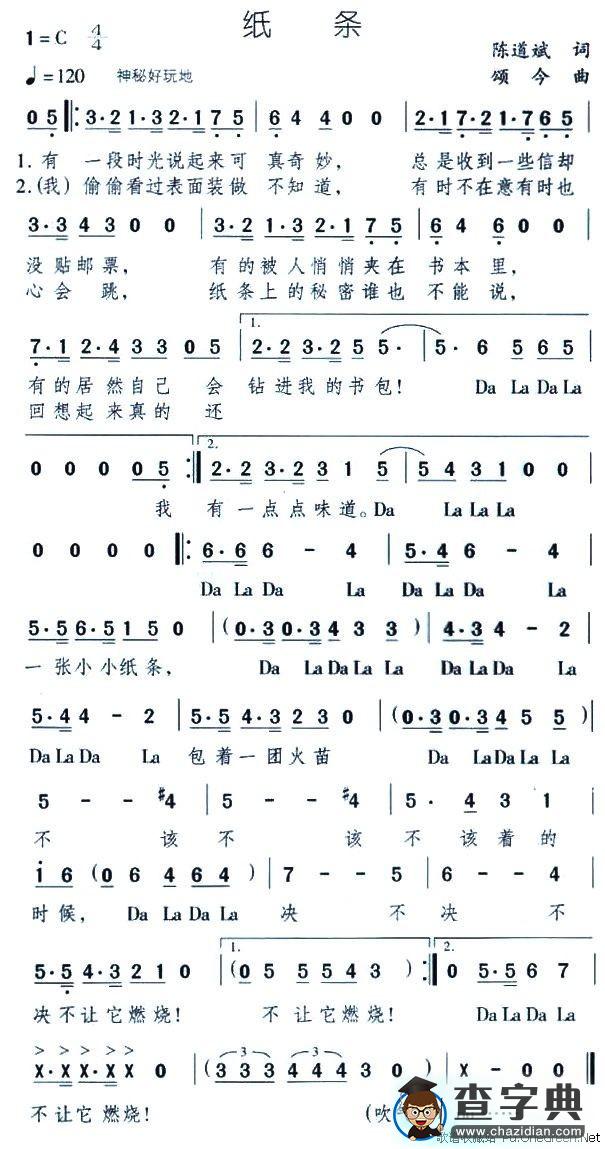 纸 条
1=C 4/4
陈道斌 词
♩=120 神秘好玩地
颂今 曲
0 5 ‖: 3·2 1·3 2·1 7 5 | 6 4 4 0 0 | 2·1 7·2 1·7 6 5 |
1. 有 一段时光说起来可 真奇妙， 总是收到一些信却
2.(我) 偷偷看过表面装做 不知道， 有时不在意有时也
3·3 4 3 0 0 | 3·2 1·3 2·1 7 5 | 6 4 6 0 0 |
没贴邮票， 有的被人悄悄夹在 书本里，
心会 跳， 纸条上的秘密谁也 不能说，
7·1 2·4 3 3 0 5 | 1. 2·2 3·2 5 5· | 5· 6 5 5 5 |
有的居然自己 会 钻进我的书包! Da La Da La
回想起来真的 还
0 0 0 0 5 :‖ 2. 2·2 3·2 3 1 5 | 5 4 3 1 0 0 |
我 有一点点味道。Da La La La
0 0 0 0 ‖: 6·6 6 - 4 | 5·4 6 - 4 |
Da La Da La Da La Da La
5·5 6·5 1 5 0 | (0·3 0·3 4 3 3) | 4·3 4 - 2 |
一张小小纸条， Da La Da La La Da La Da La
5·4 4 - 2 | 5·5 4·3 2 3 0 | (0·3 0·3 4 5 5) |
Da La Da La 包着一团火苗 Da La Da La La
5 - - #4 | 5 - - #4 | 5· 4 3 1 |
不 该不 该不 该着的
i 6 (0 6 4 6 4) | 7 - - 5 | 6 - - 4 |
时候， Da La Da La 决 不决 不
5·5 4·3 2 1 0 | 1. (0 5 5 5 4 3) :‖ 2. 0 5 6 7 |
决不让它燃烧! 不让它燃烧! Da La Da La
> > > > >
X·X X·X X X 0 | (3 3 3 4 4 4 3 0) | X - 0 0 ‖
不让它 燃烧! (吹
查字典
www.chazidian.com